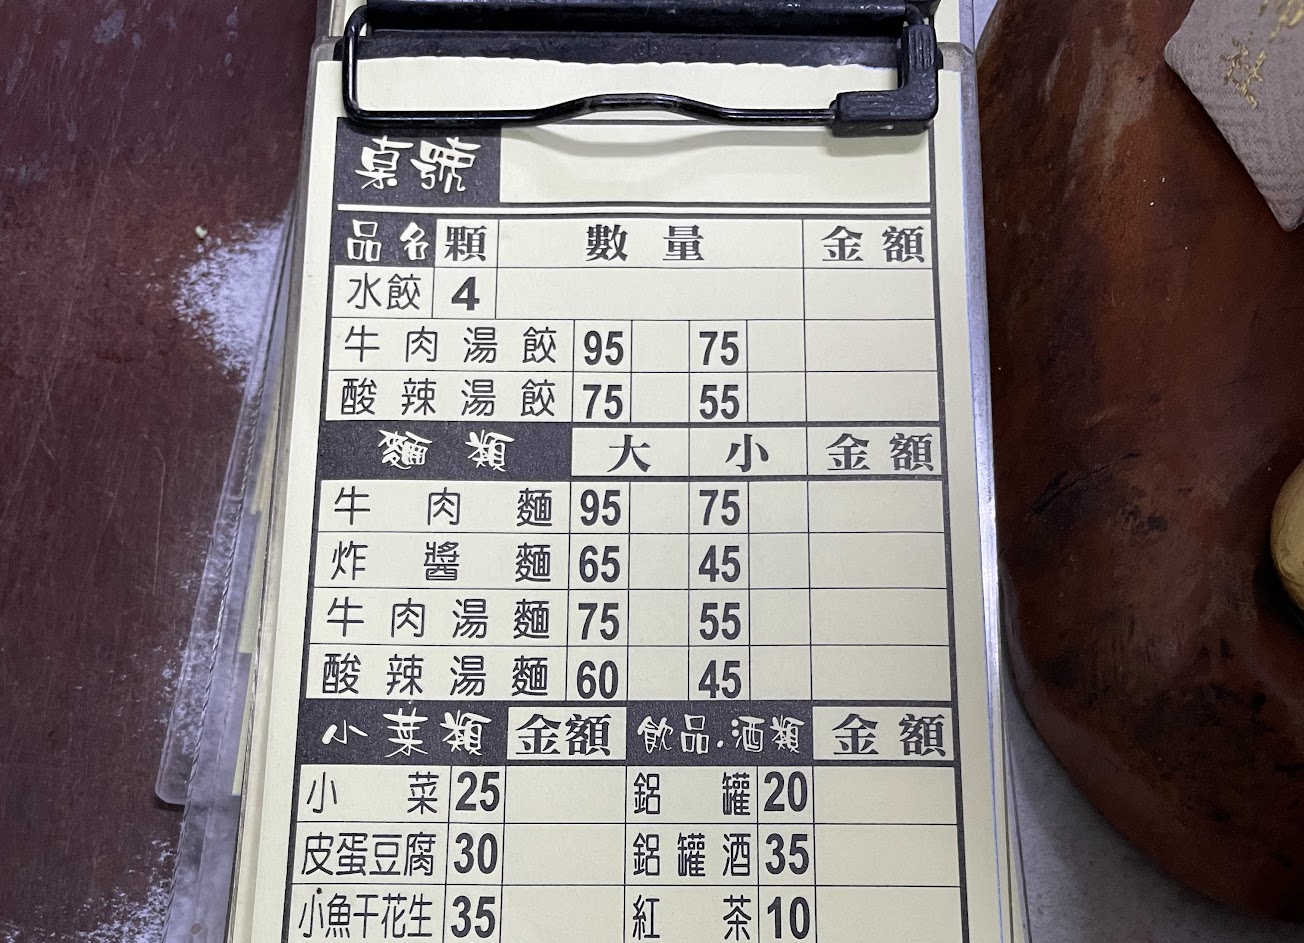 桌號
品名 顆 數量 金額
水餃 4
牛肉湯餃 95 75
酸辣湯餃 75 55
麵類 大 小 金額
牛肉麵 95 75
炸醬麵 65 45
牛肉湯麵 75 55
酸辣湯麵 60 45
小菜類 金額 飲品.酒類 金額
小菜 25 鋁罐 20
皮蛋豆腐 30 鋁罐酒 35
小魚干花生 35 紅茶 10